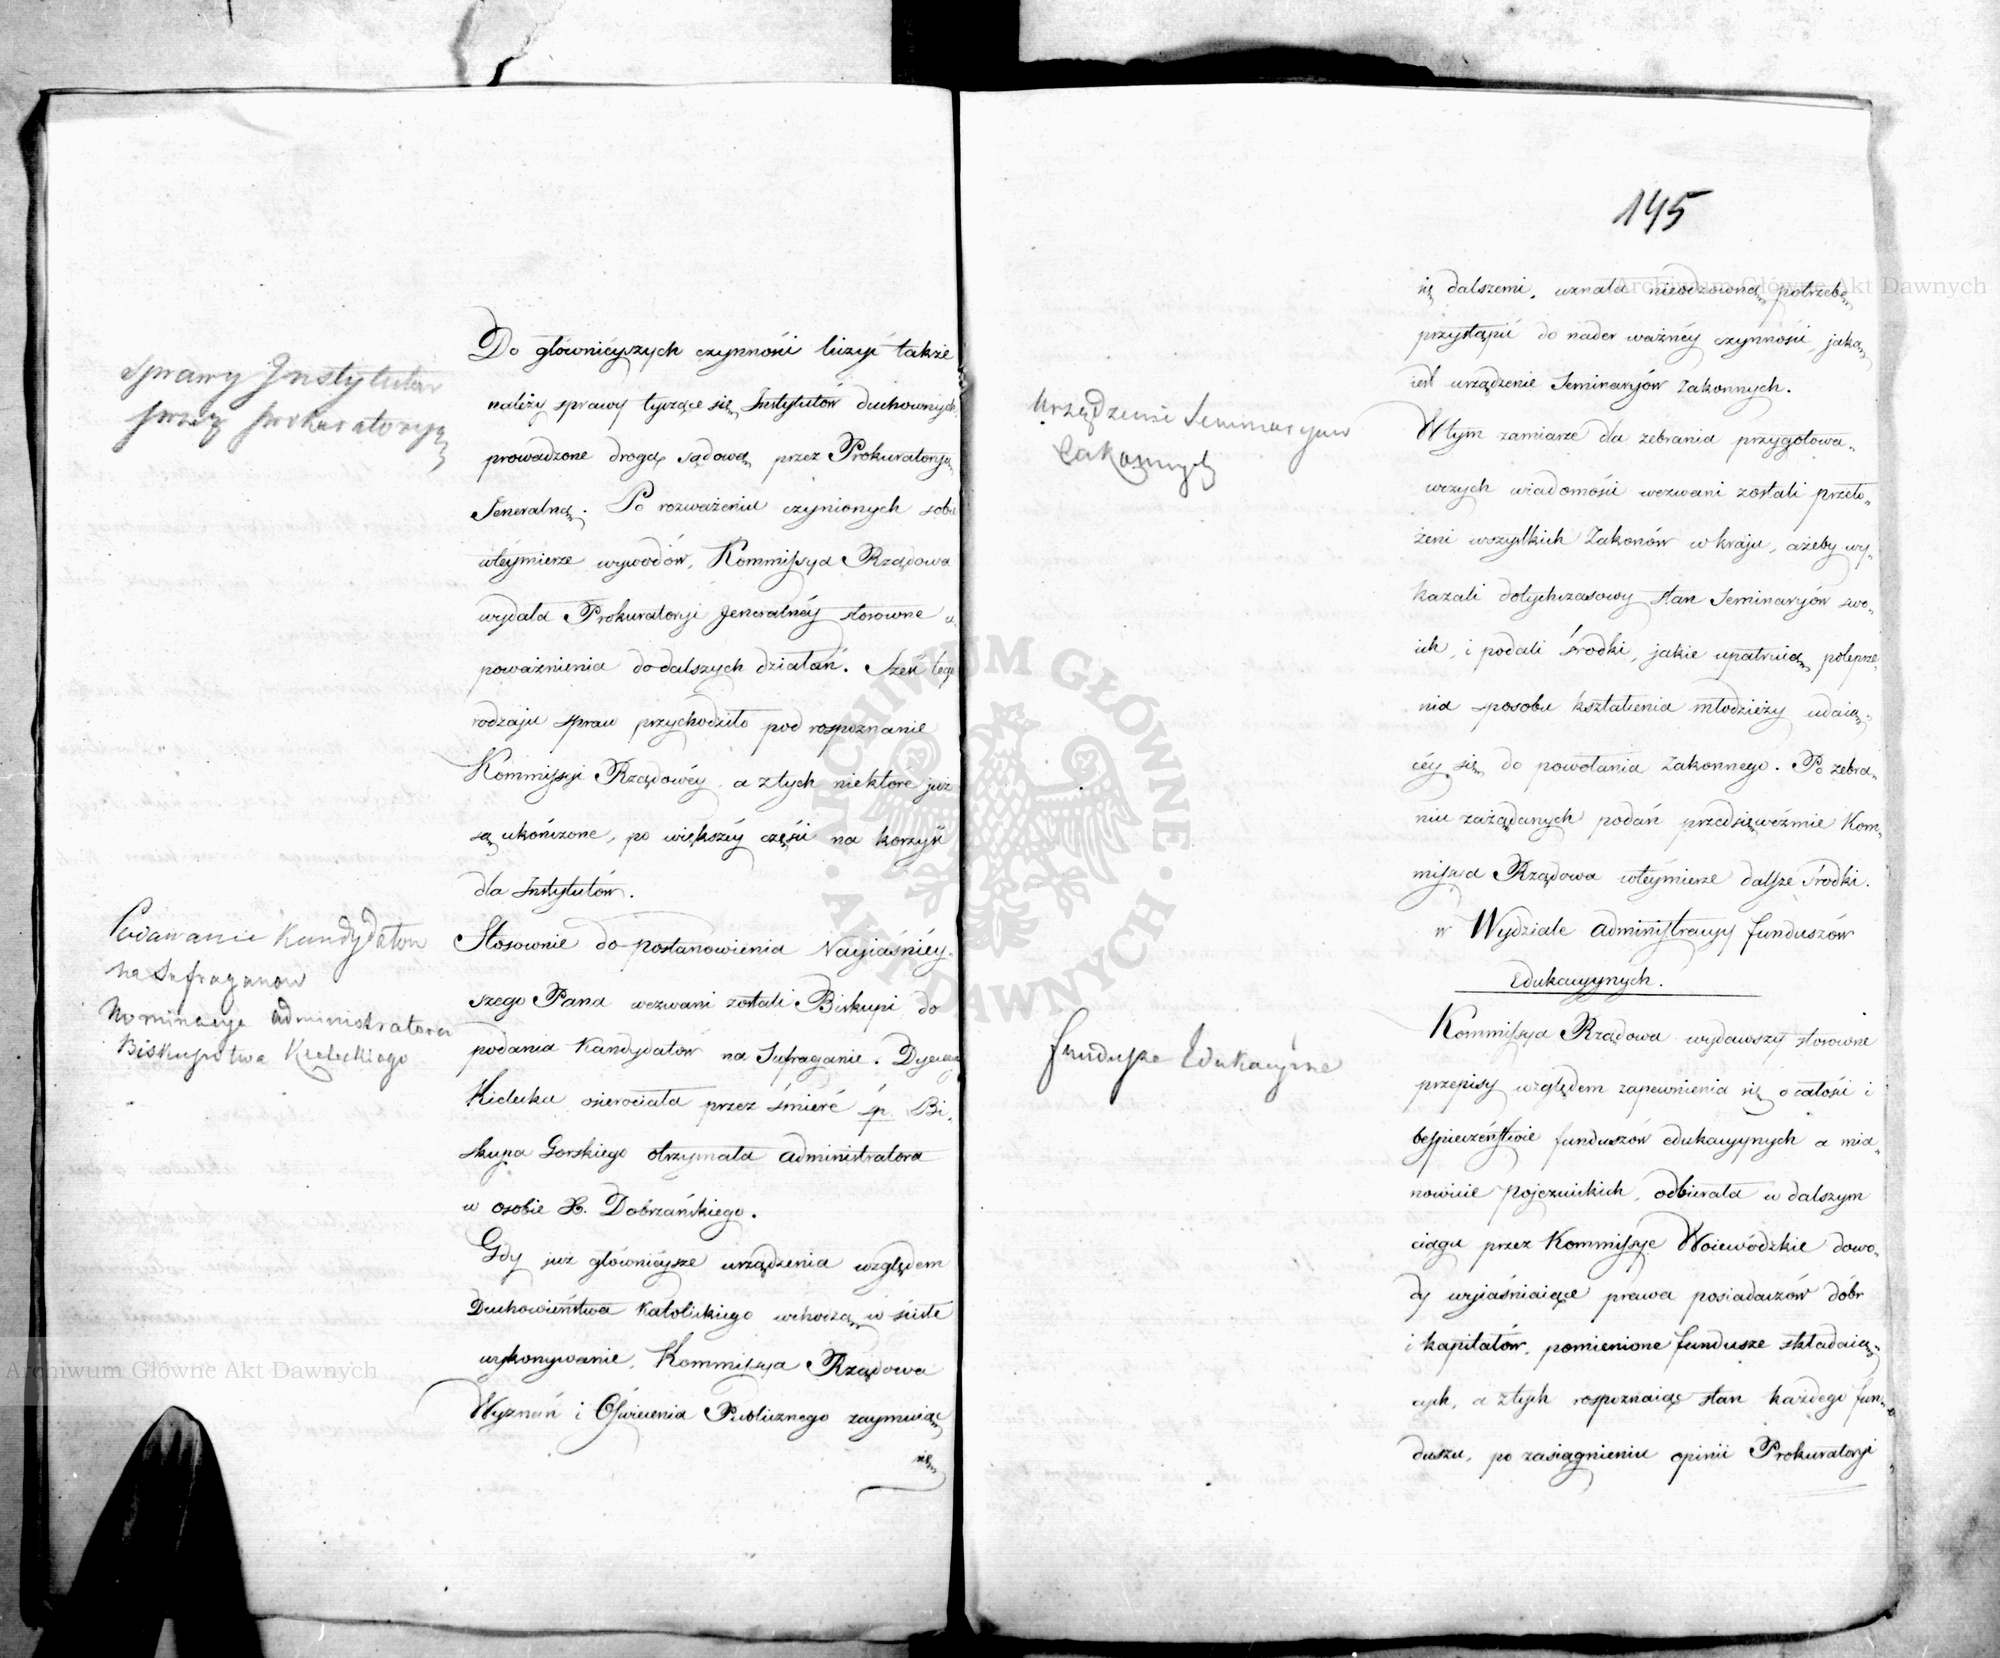 Sprawy Instytutów
przez prokuratoryą
Do głównieyszych czynności liczyć także
należy sprawy tyczące się Instytutów duchownych
prowadzone drogą sądową przez Prokuratoryą
Jeneralną. Po rozważeniu czynionych sobie
wteymierze wywodów, Kommissya Rządowa
wydała Prokuratoryi Jeneralnéy stosowne u-
poważnienia do dalszych działań. Sześć tego
rodzaju spraw przychodziło pod rospoznanie
Kommissyi Rządowéy, a z tych niektóre już
są ukończone, po większéy części na korzyść
dla Instytutów.
Podawanie Kandydatow
na Sufraganow
Nominacya administratora
Biskupstwa Kieleckiego
Stosownie do postanowienia Nayjaśniey-
szego Pana wezwani zostali Biskupi do
podania Kandydatów na Sufraganie. Dyecezya
Kielecka osierociała przez śmierć śp. Bi-
skupa Gorskiego otrzymała administratora
w osobie X. Dobrzańskiego.
Gdy już główniejsze urządzenia względem
Duchowieństwa Katolickiego wchodzą w ścisłe
wykonywanie, Kommissya Rządowa
Wyznań i Oświecenia Publicznego zaymuiąc
się
145
się dalszemi, uznała nieodzowną potrzebę
przystąpić do nader ważnéy czynności jaką
iest urządzenie Seminaryów Zakonnych.
Urządzenie Seminaryow
Zakonnych
W tym zamiarze dla zebrania przygotowa-
wczych wiadomości wezwani zostali przeło-
żeni wszystkich Zakonów w kraju, ażeby wy-
kazali dotychczasowy stan Seminaryów swo-
ich, i podali środki, jakie upatruią polepsze-
nia sposobu kształcenia młodzieży udaią-
céy się do powołania Zakonnego. Po zebra-
niu zażądanych podań przedsięweźmie Kom-
missya Rządowa wteymierze dalsze środki.
w Wydziale Administracyi funduszów
Edukacyynych.
Fundusze Edukacyine
Kommissya Rządowa wydawszy stosowne
przepisy względem zapewnienia się o całości i
bespieczeństwie funduszów edukacyynych a mia-
nowicie Pojezuickich, odbierała w dalszym
ciągu przez Kommissye Woiewódzkie dowo-
dy wyiaśniaiące prawa posiadaczów dóbr
i kapitałów, pomienione fundusze składaią-
cych, a z tych rospoznaiąc stan każdego fun-
duszu, po zasiągnieniu opinii Prokuratoryi
Archiwum Główne Akt Dawnych
Archiwum Główne Akt Dawnych
ARCHIWUM GŁÓWNE
AKT DAWNYCH